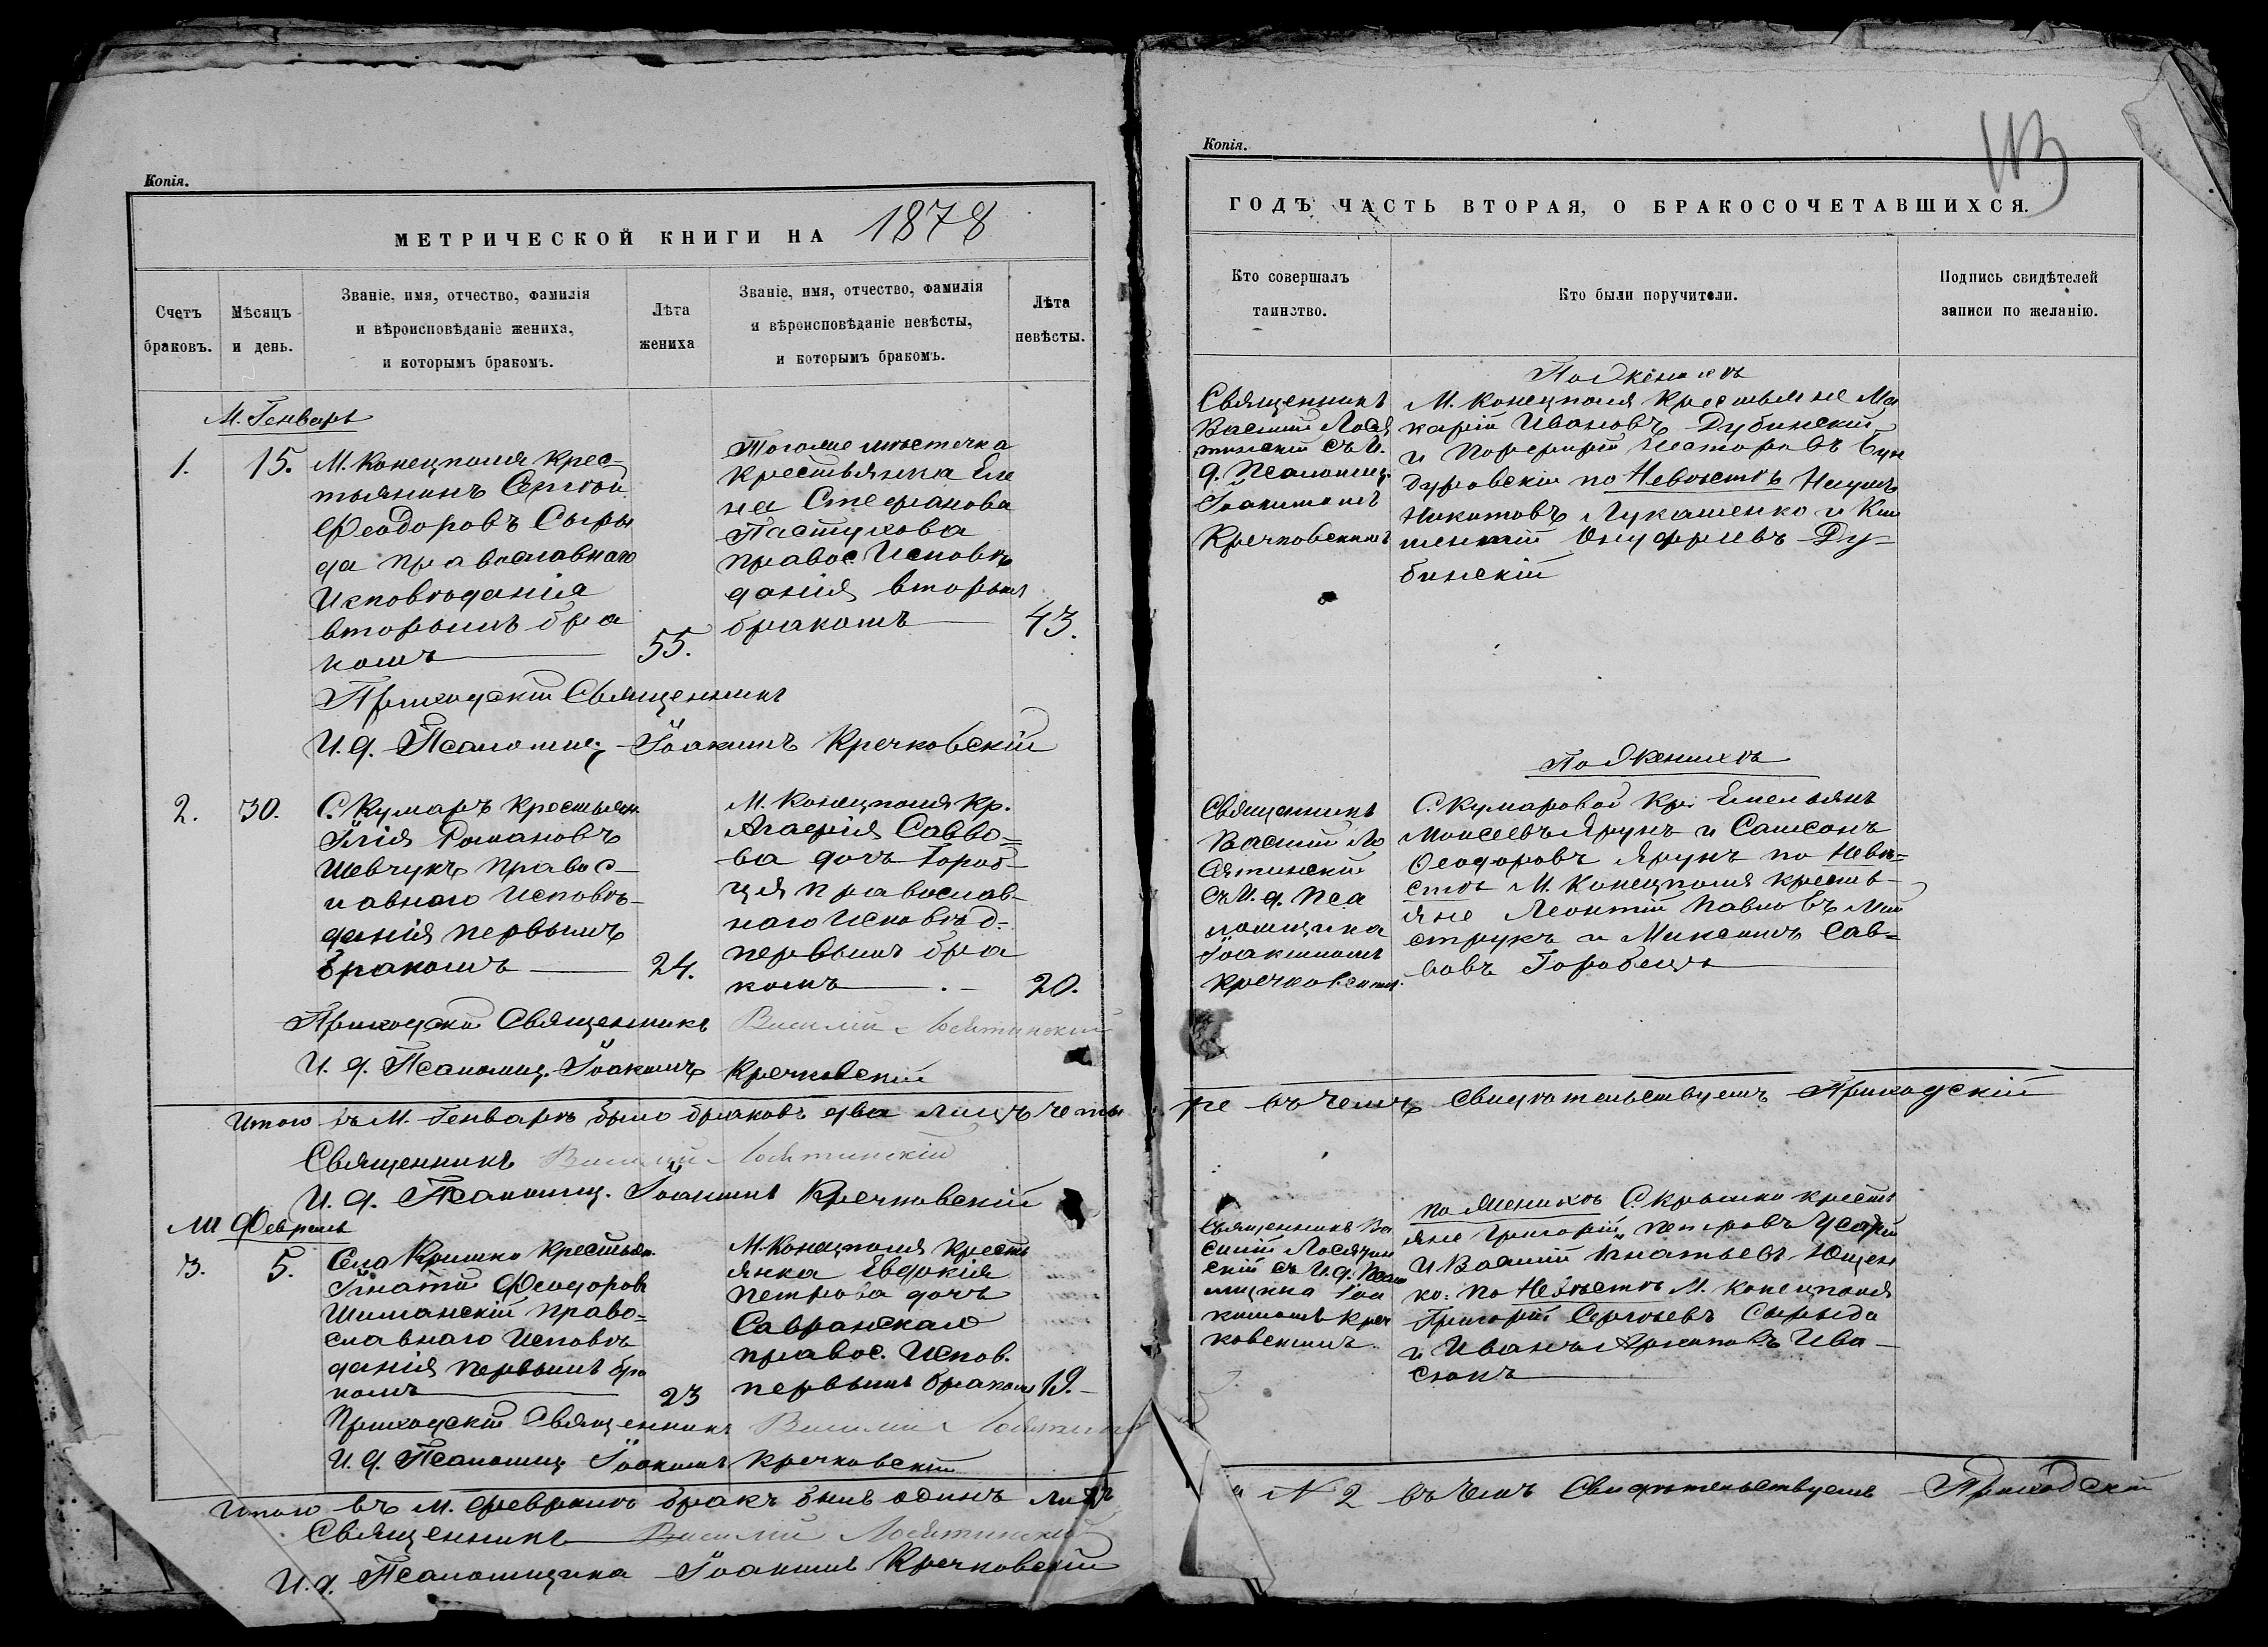 Копія.
МЕТРИЧЕСКОЙ КНИГИ НА 1878
Счетъ
браковъ.
Мѣсяцъ
и день.
Званіе, имя, отчество, фамилія
и вѣроисповѣданіе жениха,
и которымъ бракомъ.
Лѣта
жениха
Званіе, имя, отчество, фамилія
и вѣроисповѣданіе невѣсты,
и которымъ бракомъ.
Лѣта
невѣсты.
М. Генварь
1.
15.
М. Конецполя крес-
тьянинъ Сергѣй
Феодоровъ Сыры
да православнаго
Исповѣданія
вторымъ бра
комъ
55.
Тогоже мѣстечка
крестьянка Еле
на Стефанова
Пастухова
правос. Исповѣ
данія вторымъ
бракомъ
43.
Приходскій Священникъ
И. д. Псаломщ. Іоакимъ Кречковскій
2.
30.
С. Кумаръ крестьян.
Илія Романовъ
Шевчукъ Правос-
лавнаго Исповѣ-
данія первымъ
бракомъ
24.
М. Конецполя Кр.
Агафія Савво=
ва дочь Гороб-
ця православ-
наго Исповѣд=
первымъ бра
комъ
20.
Приходскій Священникъ Василій Лосятинскій
И. д. Псаломщ. Іоакимъ Кречковскій
Итого въ М. Генварѣ было браковъ два лицъ четы
Священникъ Василій Лосятинскій
И. д. Псаломщ. Іоакимъ Кречковскій
М Февраль
3.
5.
Села Кримки Крестьян.
Игнатій Феодоровъ
Шиманскій Право=
славнаго Исповѣ
данія первымъ бра
комъ
23
М. Конецполя Кресть
янка Евдокія
Петрова дочь
Савранскаго
правос. Испов.
первымъ бракомъ
19.
Приходскій Священникъ Василій
И. д. Псаломщ Іоакимъ Кречковскій
Итого въ М. Февралѣ бракъ былъ одинъ лицъ
Священникъ Василій Лосятинскій
И. д. Псаломщика Іоакимъ Кречковскій
Копія.
113
ГОДЪ ЧАСТЬ ВТОРАЯ, О БРАКОСОЧЕТАВШИХСЯ.
Кто совершалъ
таинство.
Кто были поручители.
Подпись свидѣтелей
записи по желанію.
Священникъ
Василій Лося
тинскій съ И.
д. Псаломщ.
Іоакимомъ
Кречковскимъ
По Женихѣ
М. Конецполя Крестьяне Ма
карій Ивановъ Дубинскій
и Порфирій Несторовъ Бун
дуровскій по Невѣстѣ Наумъ
Никитовъ Лукашенко и Кли
ментій Онуфріевъ Ду-
бинскій
Священникъ
Василій Ло
сятинскій
съ И. д. Пса
ломщика
Іоакимомъ
Кречковскимъ.
По Женихѣ
С. Кумаровой Кр. Емельянъ
Моисеевъ Ярунъ и Самсонъ
Феодоровъ Ярунъ по Невѣ=
стѣ М. Конецполя кресть-
яне Леонтій Павловъ Ми
струкъ и Максимъ Сав=
вовъ Горобець
ре въ чемъ Свидѣтельствуемъ Приходскій
Священникъ Ва
силій Лосятин
скій съ И. д. Псал
мщика Іоа
кимомъ Креч
ковскимъ.
по Женихѣ С. Крымки кресть
яне Григорій Петровъ
и Василій Игнатьевъ Ющен
ко: по Невѣстѣ М. Конецполя
Григорій Сергѣевъ Сырыда
и Иванъ Архиповъ Ива-
сюкъ
№ 2 въ чемъ Свидѣтельствуемъ Приходскій